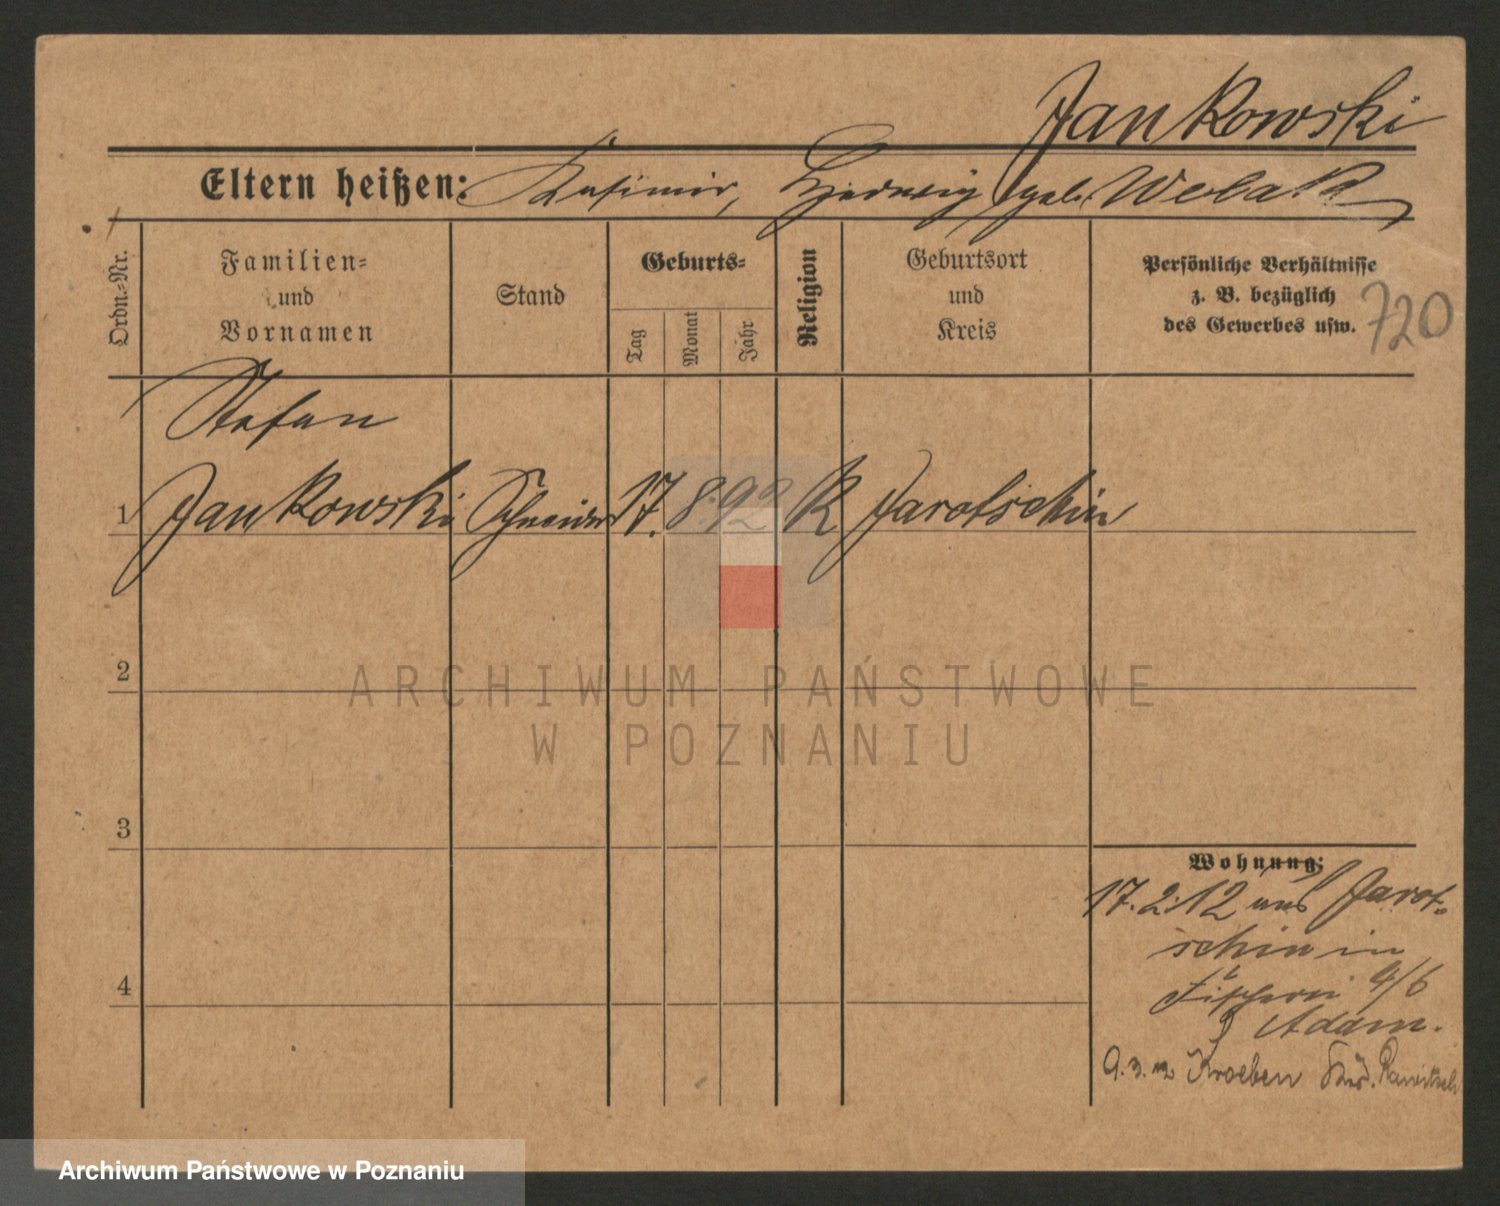 Jankowski
Eltern heißen: Kasimir, Hedwig geb. Welak
Ordn.-Nr.
Familien-
und
Vornamen
Stand
Geburts-
Tag
Monat
Jahr
Religion
Geburtsort
und
Kreis
Persönliche Verhältnisse
z. B. bezüglich
des Gewerbes usw.
720
Stefan
1 Jankowski Schneider 17. 8. 92 K Jarotschin
2
ARCHIWUM PAŃSTWOWE
W POZNANIU
3
Wohnung:
17.2.12 aus Jarot-
schin in
Fischerei 4/6
b Adam.
9.3.12 Kroeben Krs.
4
Archiwum Państwowe w Poznaniu